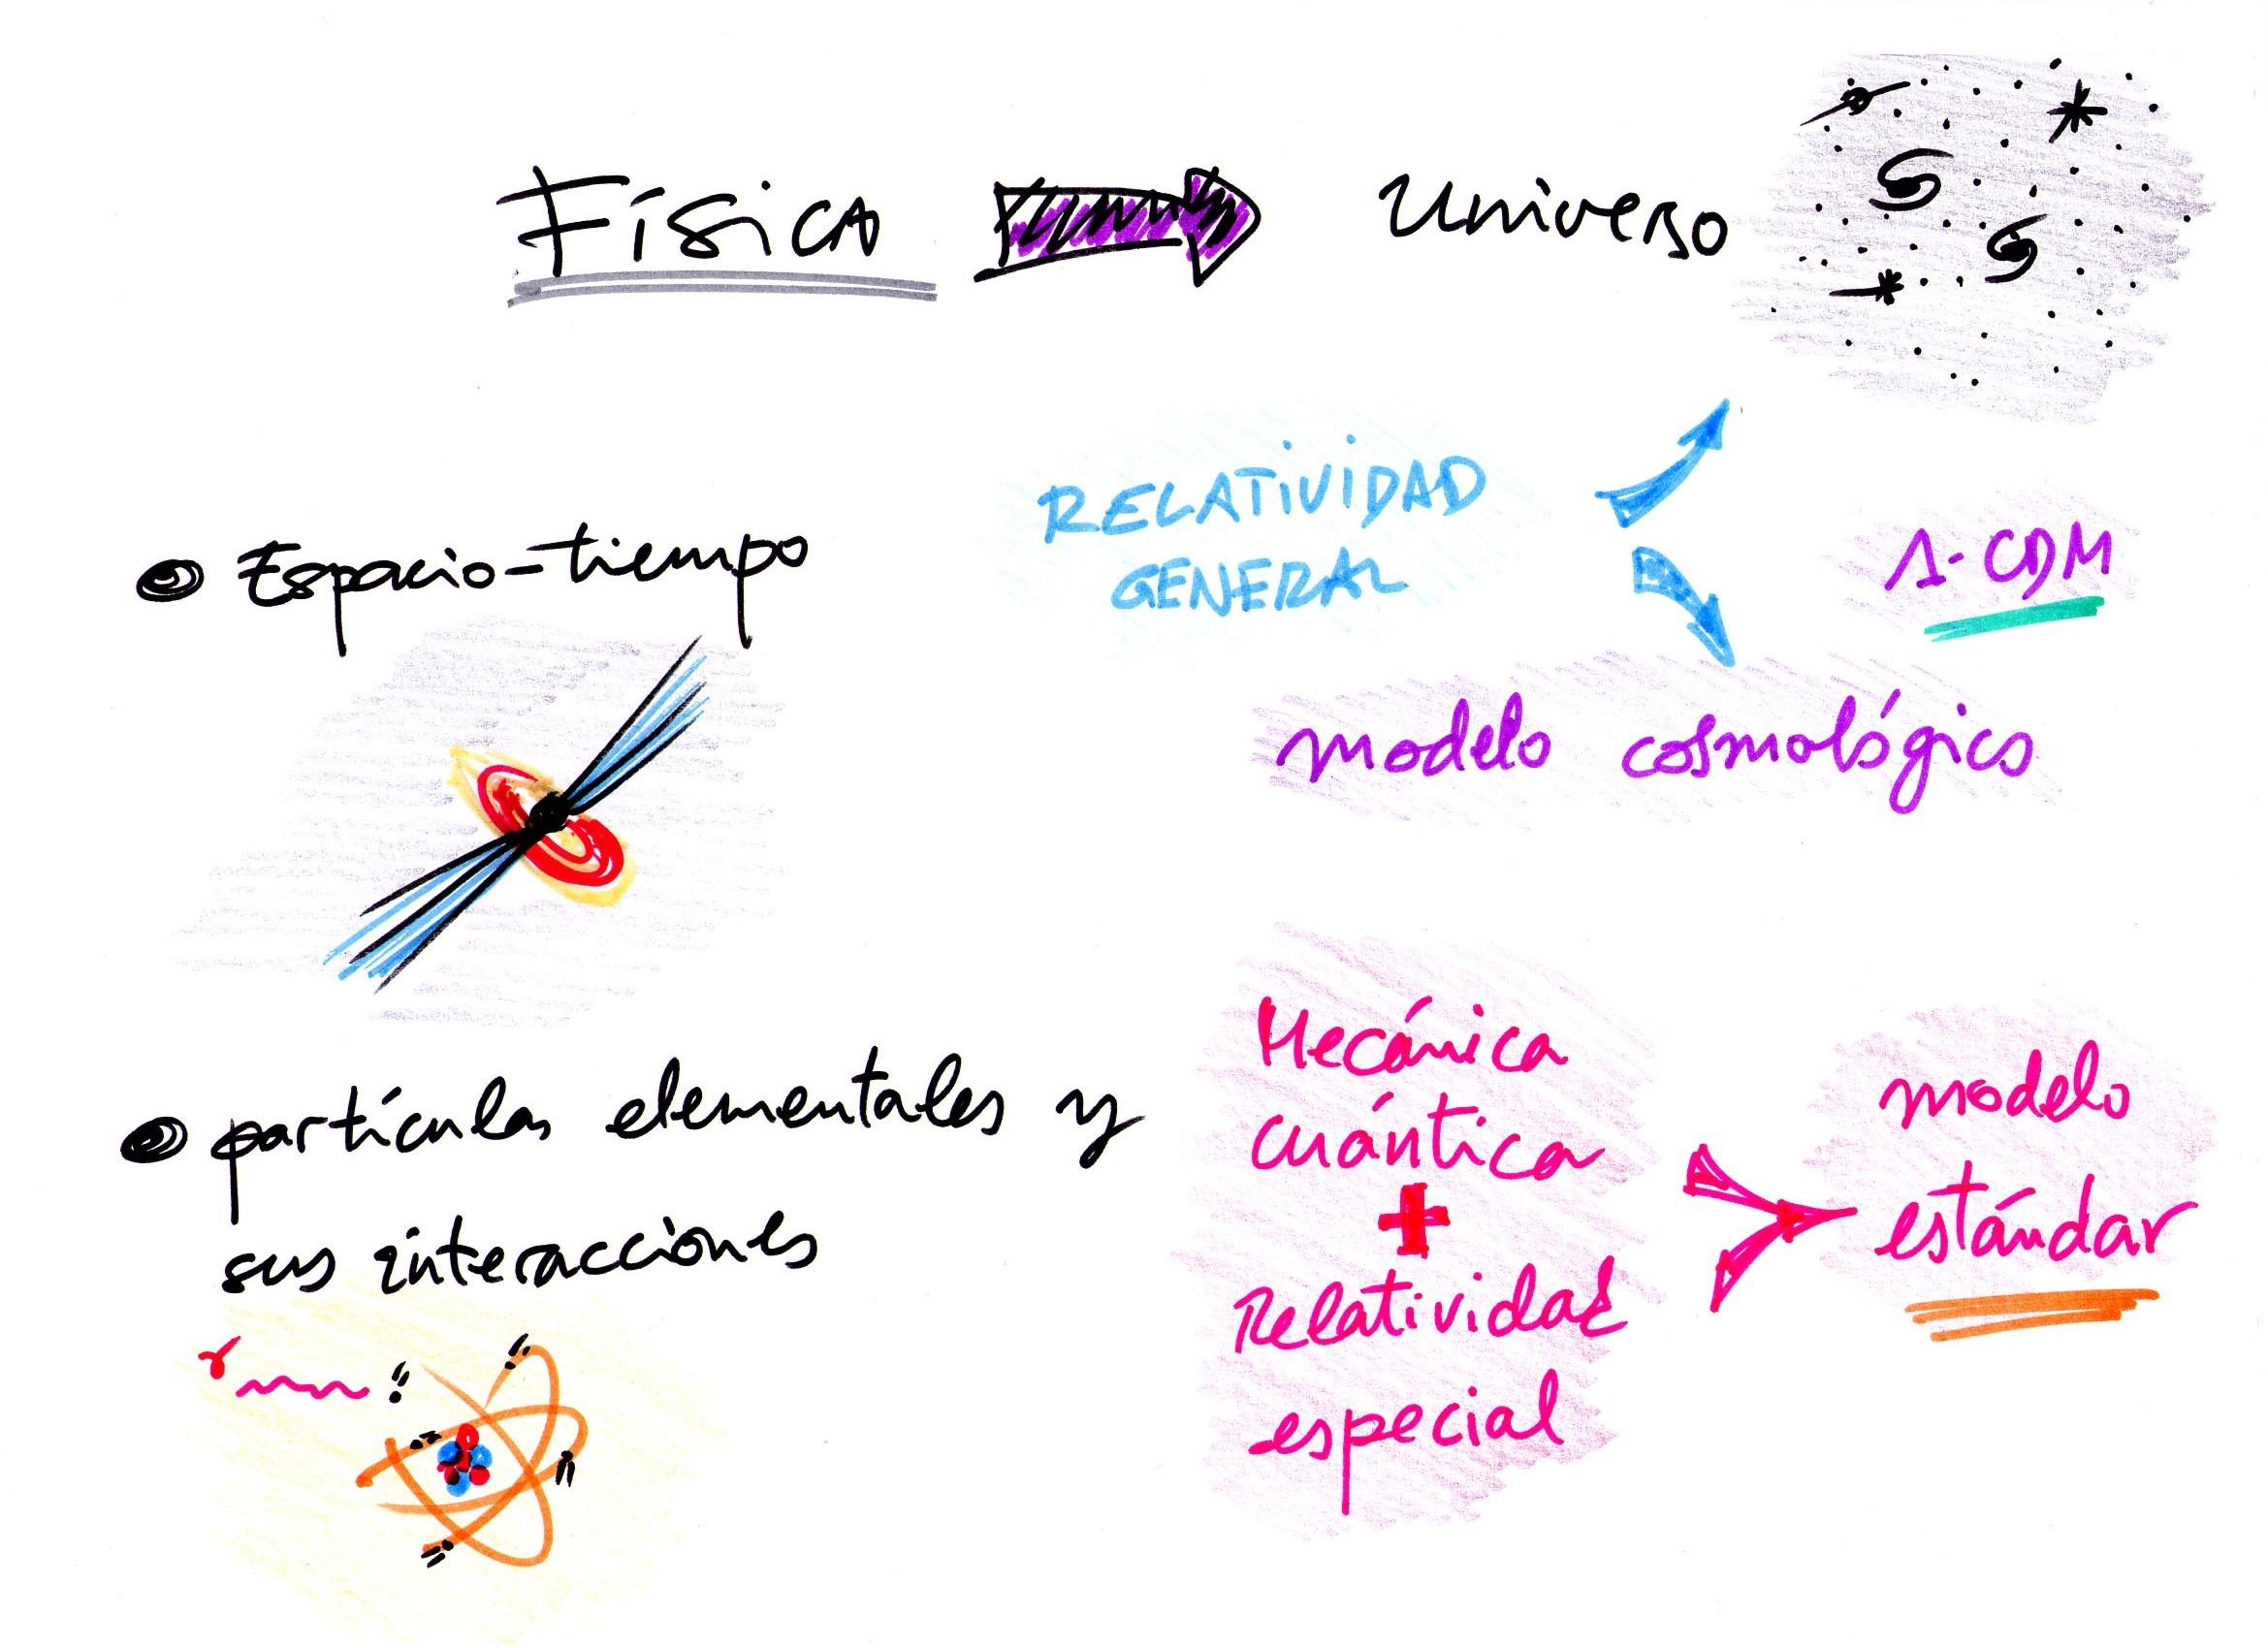 Física
universo
RELATIVIDAD
GENERAL
Λ-CDM
Espacio-tiempo
modelo cosmológico
partículas elementales y
sus interacciones
Mecánica
cuántica
+
Relatividad
especial
modelo
estándar
γ